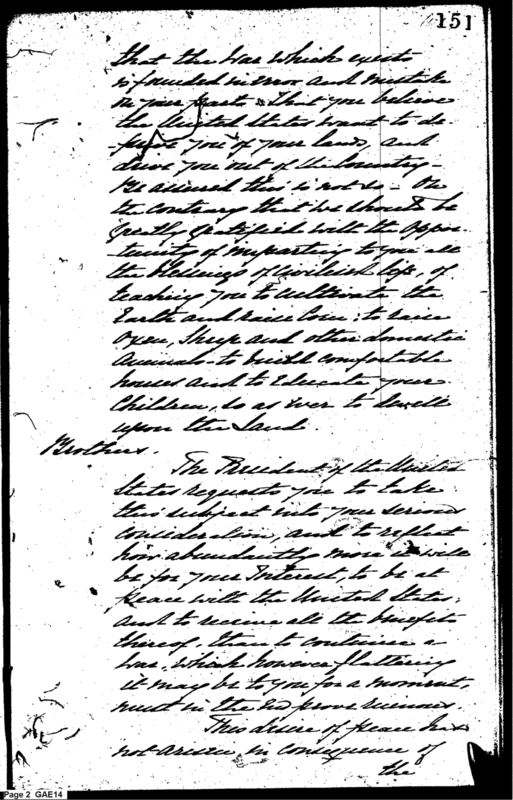 151
that the War which exists
is founded in error and mistake
on your parts. That you believe
the United States want to de-
-prive you of your lands, and
drive you out of the Country -
Be assured this is not so - On
the contrary that we should be
greatly gratified with the oppor-
-tunity of imparting to you all
the blessings of civilized life, of
teaching you to cultivate the
Earth and raise Corn; to raise
Oxen, Sheep and other domestic
Animals to build comfortable
houses and to Educate your
Children, so as ever to dwell
upon the Land.
Brothers.
The President of the United
States requests you to take
this subject into your serious
consideration, and to reflect
how abundantly more it will
be for your Interest, to be at
peace with the United States,
and to receive all the benefits
thereof, than to continue a
War, which however flattering
it may be to you for a moment,
must in the end prove ruinous.
This desire of peace has
not arisen in consequence of
the
Page 2 GAE14